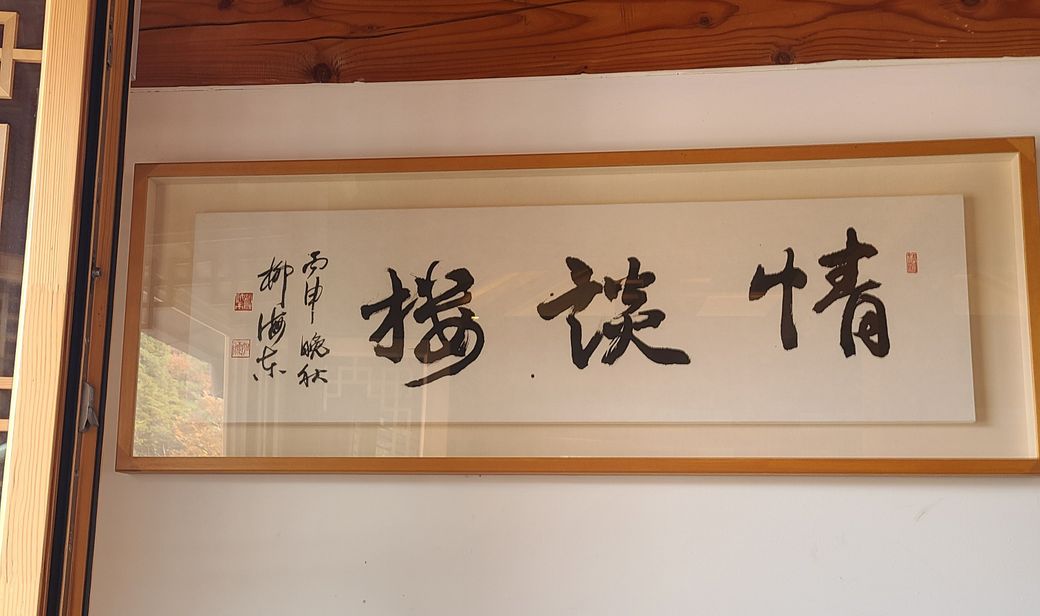 情談樓
丙申 晚秋
柳海東